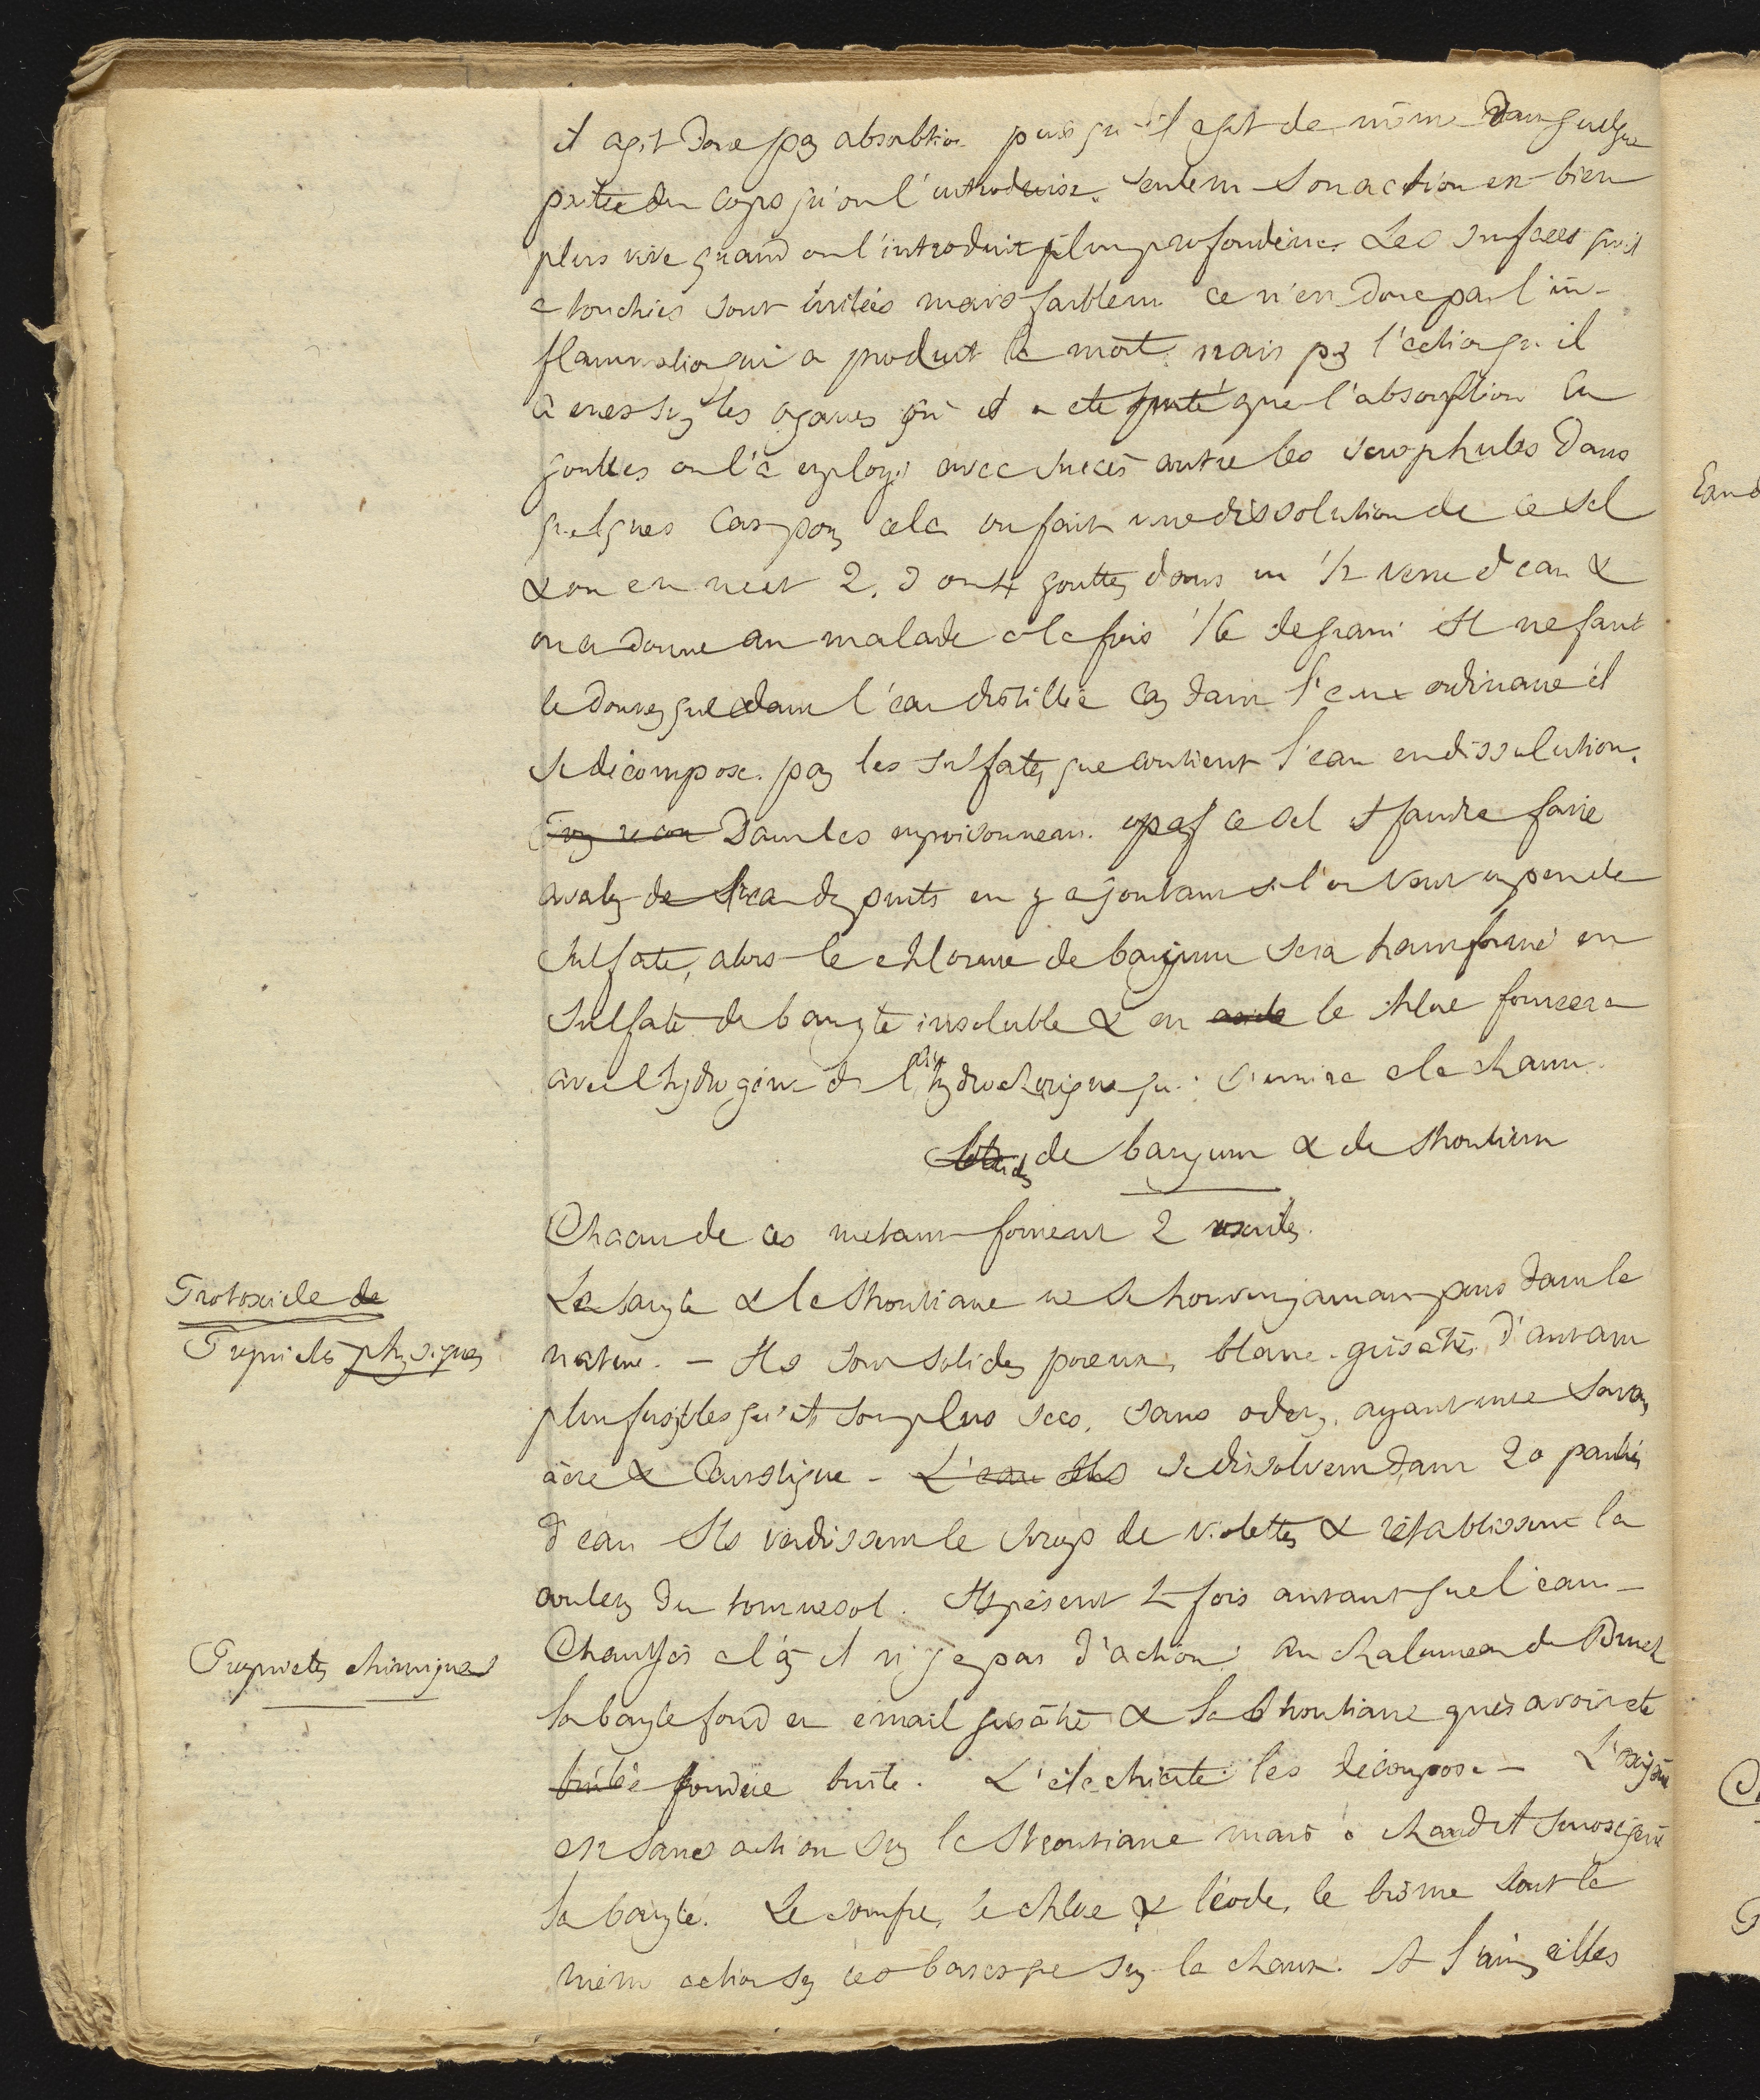 il agit donc par absorbtion puis qu'il agit de même dans quelque
partie du corps qu'on l'introduise. Seulem son action est bien
plus vive quand on l'introduit plus profondém. Les surfaces qu'il
a touchées sont irritées mais faiblem ce n'est donc pas l'in-
flammation qui a produit la mort mais par l'action qu'il
a exer sur les organes où il a été porté par l'absorption En
gouttes on l'a employé avec succès contre les scrophules Dans
quelques cas pour cela on fait une dissolution de ce sel
& on en met 2, 3 ou 4 gouttes dans un 1/2 verre d'eau &
on en donne au malade à la fois 1/6 de grain Il ne faut
le donner que dans l'eau distillée car dans l'eau ordinaire il
se décompose par les sulfates que contient l'eau en dissolution.
Dans les empoisonnem. par ce sel il faudra faire
avaler de l'eau de puits en y ajoutant si l'on veut un peu de
sulfate, alors le chlorure de baryum sera transformé en
sulfate de baryte insoluble & en acide le chlore formera
avec l'hydrogène de l'ac hydrochlorique qui s'unira à la chaux.
de baryum & de strontium
Chacun de ces métaux forment 2 oxides.
Protoxide de
La baryte & la strontiane ne se trouvent jamais purs dans la
Propriétés physiques
nature. - Ils sont solides poreux, blanc-grisâtre, d'autant
plus fusibles qu'ils sont plus secs, sans odeur, ayant une saveur
âcre & caustique - L'eau Ils se dissolvent dans 20 parties
d'eau Ils verdissent le sirop de violettes & rétablissent la
couleur du tournesol. Ils pèsent 4 fois autant que l'eau -
Propriétés chimiques
Chauffés à l'air il n'y a pas d'action au chalumeau de Brook
la baryte fond en émail grisâtre & la strontiane après avoir été
brulée fondue brule. L'électricité les décompose - L'oxigène
est sans action sur la strontiane mais à chaud il suroxigène
la baryte. Le soufre, le chlore & l'iode, le brôme ont la
même action sur ces bases que sur la chaux. A l'air elles
Eau d